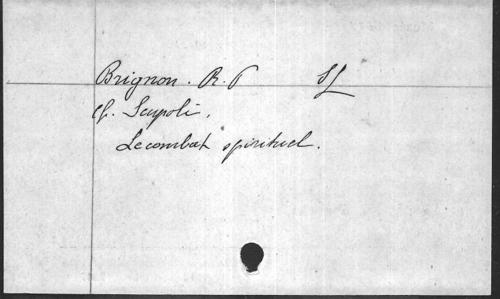 Brignon. R. P SL
cf. Scupoli.
Le combat spirituel.